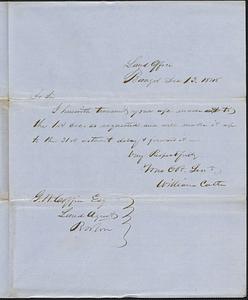 Land Office
Bangor Dec 13, 1845
Dr Sir
I herewith transmit your
the 1st Dec. as requested and will make it up
to the 31st without delay & forward it
Very Respectfully
Your Obt. Servt.
William Cutter
G. W. Coffin Esq
Land Agent
Boston